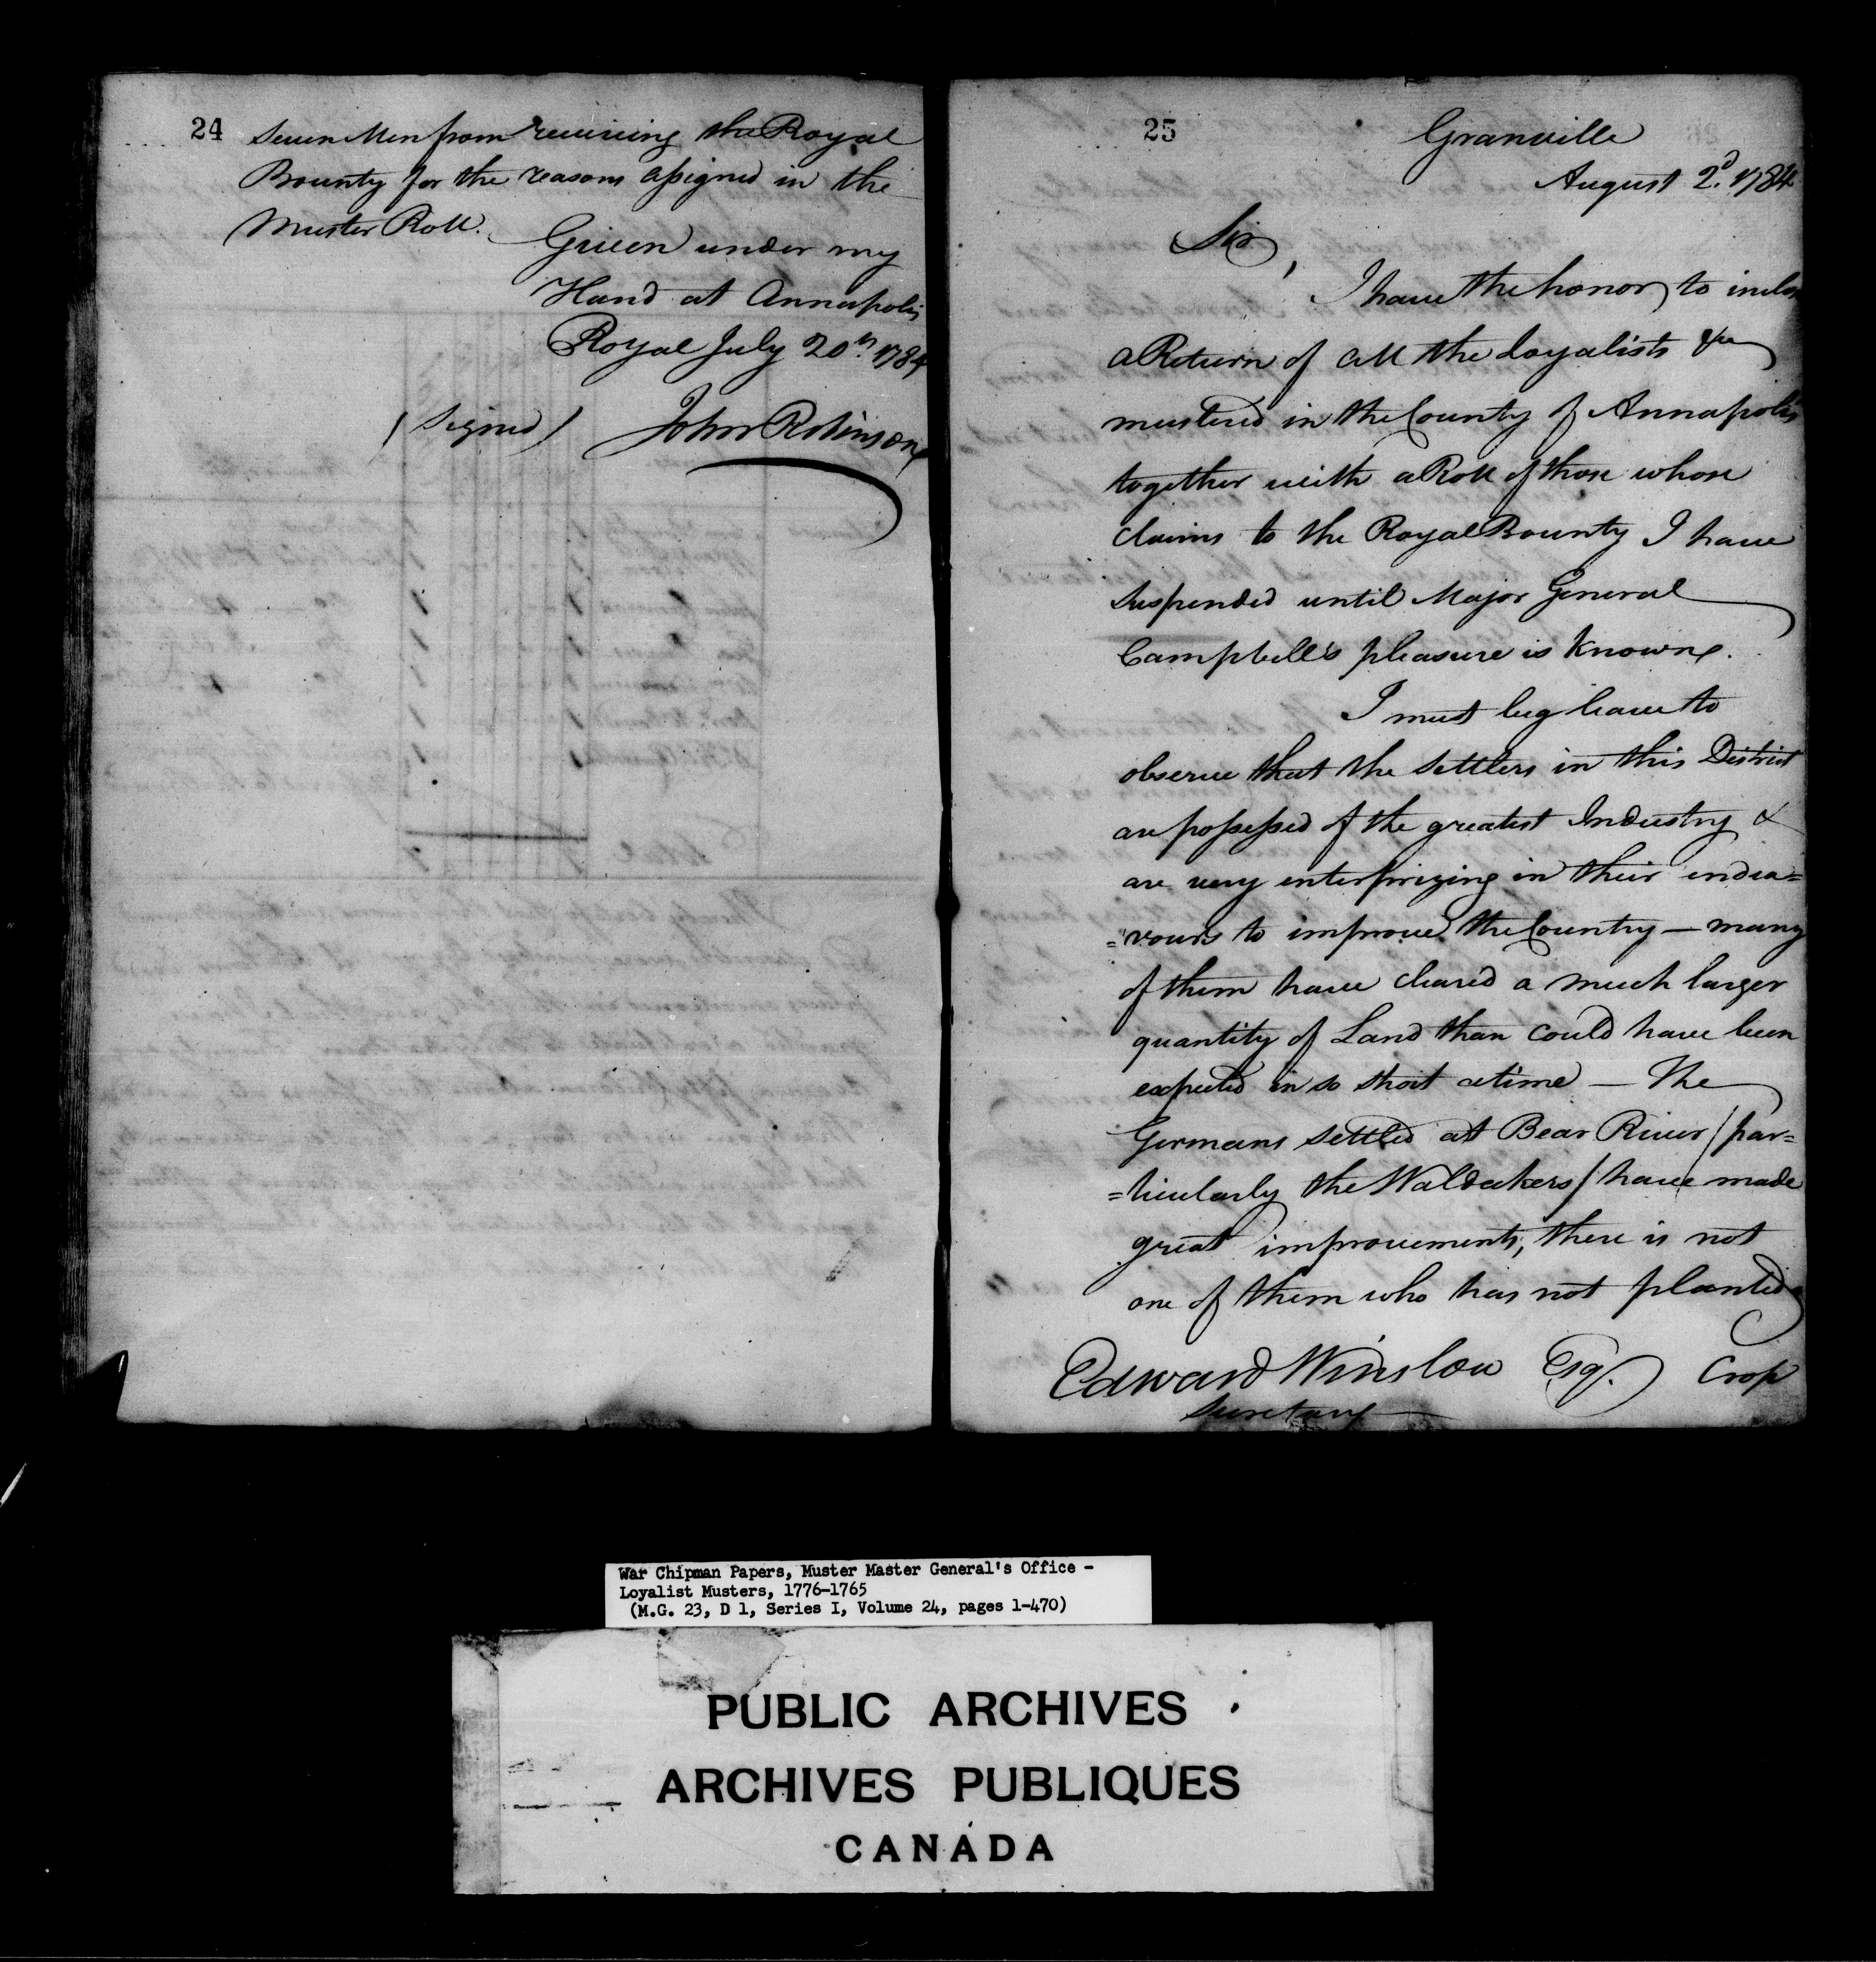 24
Seven Men from receiving the Royal
Bounty for the reasons assigned in the
Muster Roll.
Given under my
Hand at Annapolis
Royal July 20th. 1784
(Signed) John Robinson
25
Granville
August 2d. 1784
Sir,
I have the honor to inclose
a Return of all the Loyalists &c
mustered in the County of Annapolis
together with a Roll of those whose
claims to the Royal Bounty I have
suspended until Major General
Campbell's pleasure is known.
I must beg leave to
observe that the Settlers in this District
are possessed of the greatest Industry &
are very enterprizing in their endea=
=vours to improve the Country — many
of them have cleared a much larger
quantity of Land than could have been
expected in so short a time — The
Germans settled at Bear River (par=
=ticularly the Waldeckers) have made
great improvements, there is not
one of them who has not planted a
Edward Winslow Esq. Crop
Secretary
War Chipman Papers, Muster Master General's Office -
Loyalist Musters, 1776-1765
(M.G. 23, D 1, Series I, Volume 24, pages 1-470)
PUBLIC ARCHIVES
ARCHIVES PUBLIQUES
CANADA